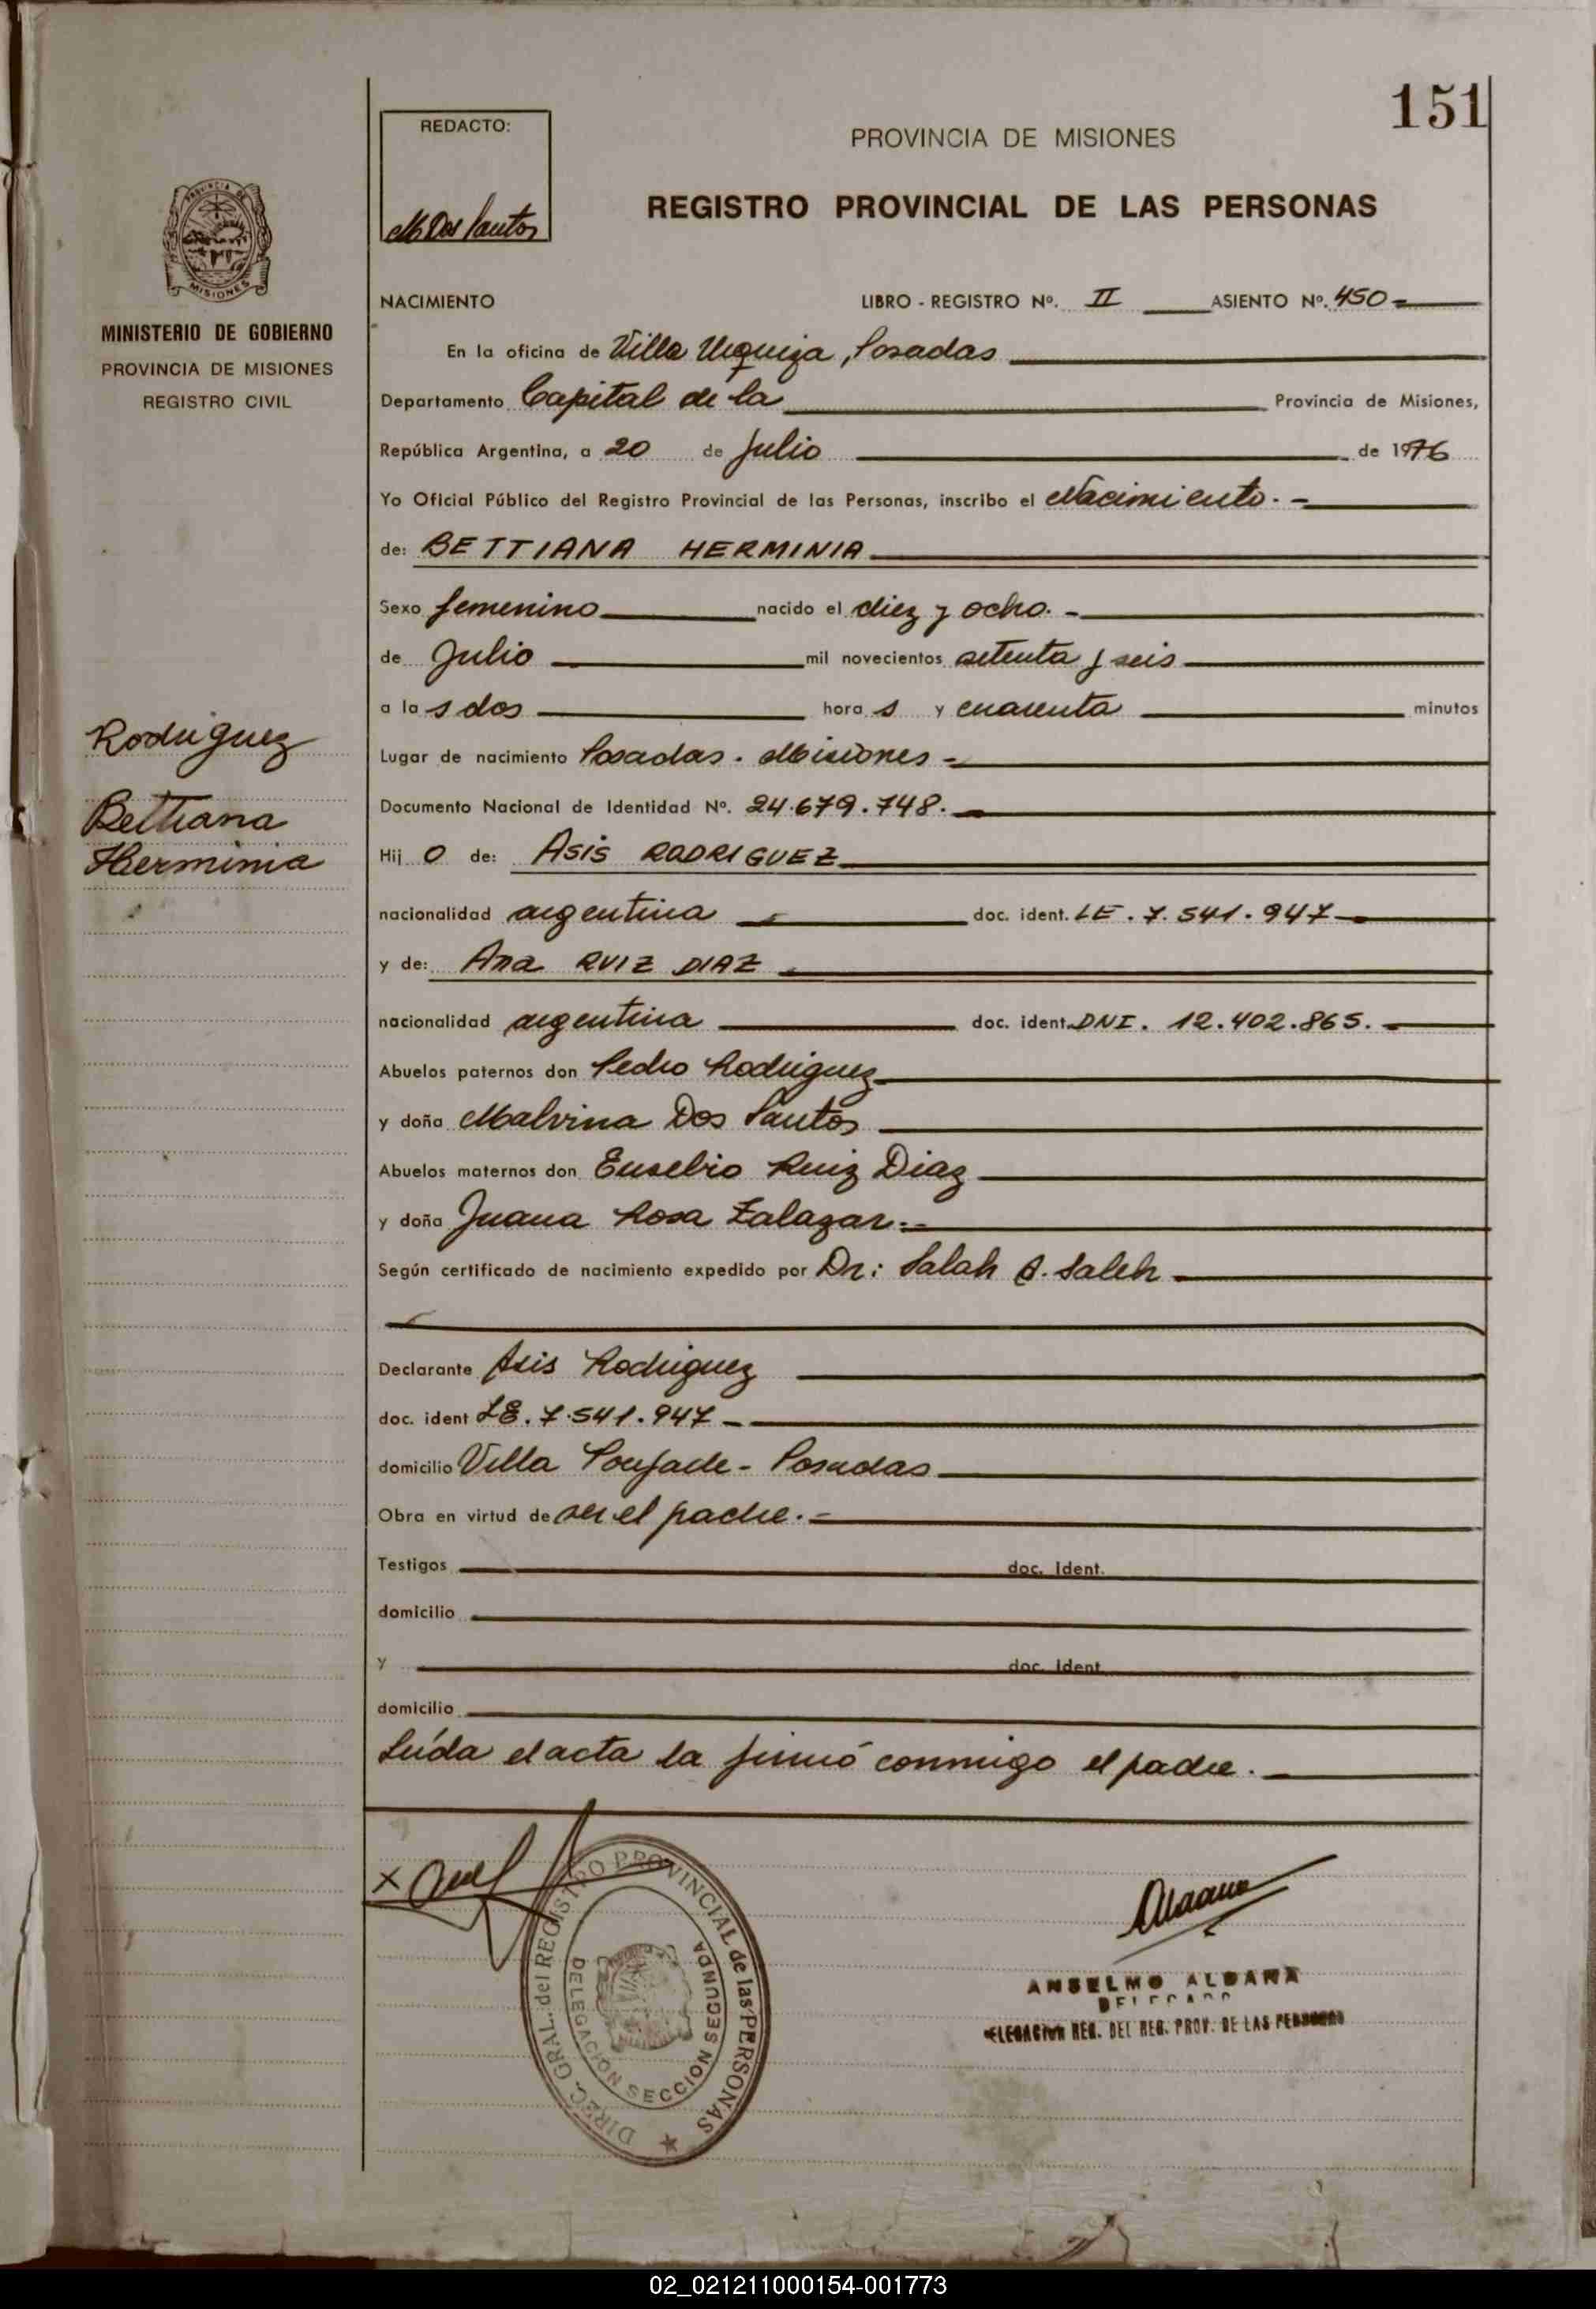 151
REDACTO:
M Dos Santos
PROVINCIA DE MISIONES
REGISTRO PROVINCIAL DE LAS PERSONAS
PROVINCIA DE
MISIONES
MINISTERIO DE GOBIERNO
PROVINCIA DE MISIONES
REGISTRO CIVIL
Rodriguez
Bettiana
Herminia
NACIMIENTO LIBRO - REGISTRO Nº. II ASIENTO Nº. 450
En la oficina de Villa Urquiza, Posadas
Departamento Capital de la Provincia de Misiones,
República Argentina, a 20 de Julio de 1976
Yo Oficial Público del Registro Provincial de las Personas, inscribo el Nacimiento.-
de: BETTIANA HERMINIA
Sexo femenino nacido el diez y ocho.-
de Julio mil novecientos setenta y seis
a las dos horas y cuarenta minutos
Lugar de nacimiento Posadas. Misiones-
Documento Nacional de Identidad Nº. 24.679.748.
Hijo de: Asis RODRIGUEZ
nacionalidad argentina doc. ident. LE. 7.541.947
y de: Ana RUIZ DIAZ
nacionalidad argentina doc. ident. DNI. 12.402.865.
Abuelos paternos don Pedro Rodriguez
y doña Malvina Dos Santos
Abuelos maternos don Eusebio Ruiz Diaz
y doña Juana Rosa Zalazar.-
Según certificado de nacimiento expedido por Dr: Salah A. Saleh
Declarante Asis Rodriguez
doc. ident LE. 7.541.947
domicilio Villa Poujade - Posadas
Obra en virtud de ser el padre.-
Testigos doc. Ident.
domicilio
y doc. Ident
domicilio
Leída el acta la firmó conmigo el padre.
X
DIREC. GRAL. del REGISTRO PROVINCIAL de las PERSONAS
DELEGACION SECCION SEGUNDA
ANSELMO ALDANA
DELEGADO
DELEGACION REG. DEL REG. PROV. DE LAS PERSONAS
02_021211000154-001773